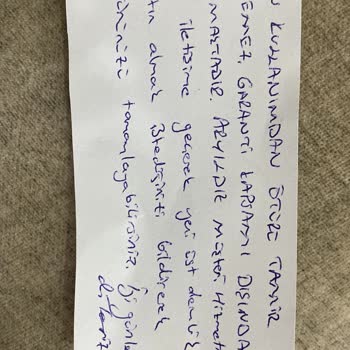 KULLANIMDAN ÖTÜRÜ TAMİR
EMEZ, GARANTİ KAPSAMI DIŞINDA
MAKTADIR. ARYILDIZ Müşteri Hizmet
iletişime geçerek yeni üst demlik
tın almak istediğinizi bildirerek
inizi tamamlayabilirsiniz. İyi günle
dileriz